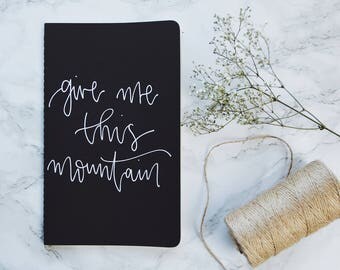 give me
this
mountain